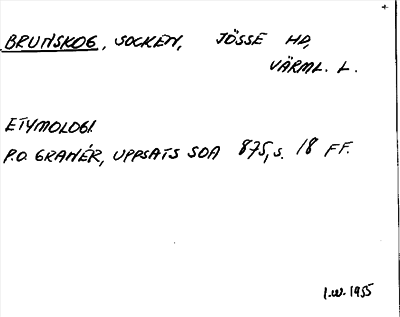 BRUNSKOG, SOCKEN, JÖSSE HD,
VÄRML. L.
ETYMOLOGI.
P.O. GRANÉR, UPPSATS SOA 875, S. 18 FF.
I.W. 1955